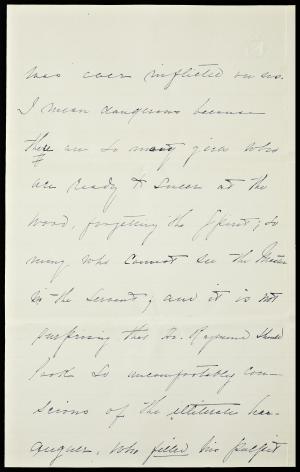 was ever inflicted on us.
I mean dangerous because
there are so many girls who
are ready to sneer at the
word, forgetting the Spirit; so
many who cannot see the Master
in the Servant; and it is not
surprising that Dr. Raymond should
look so uncomfortably con-
scious of the illiterate har-
anguer, who filled his pulpit